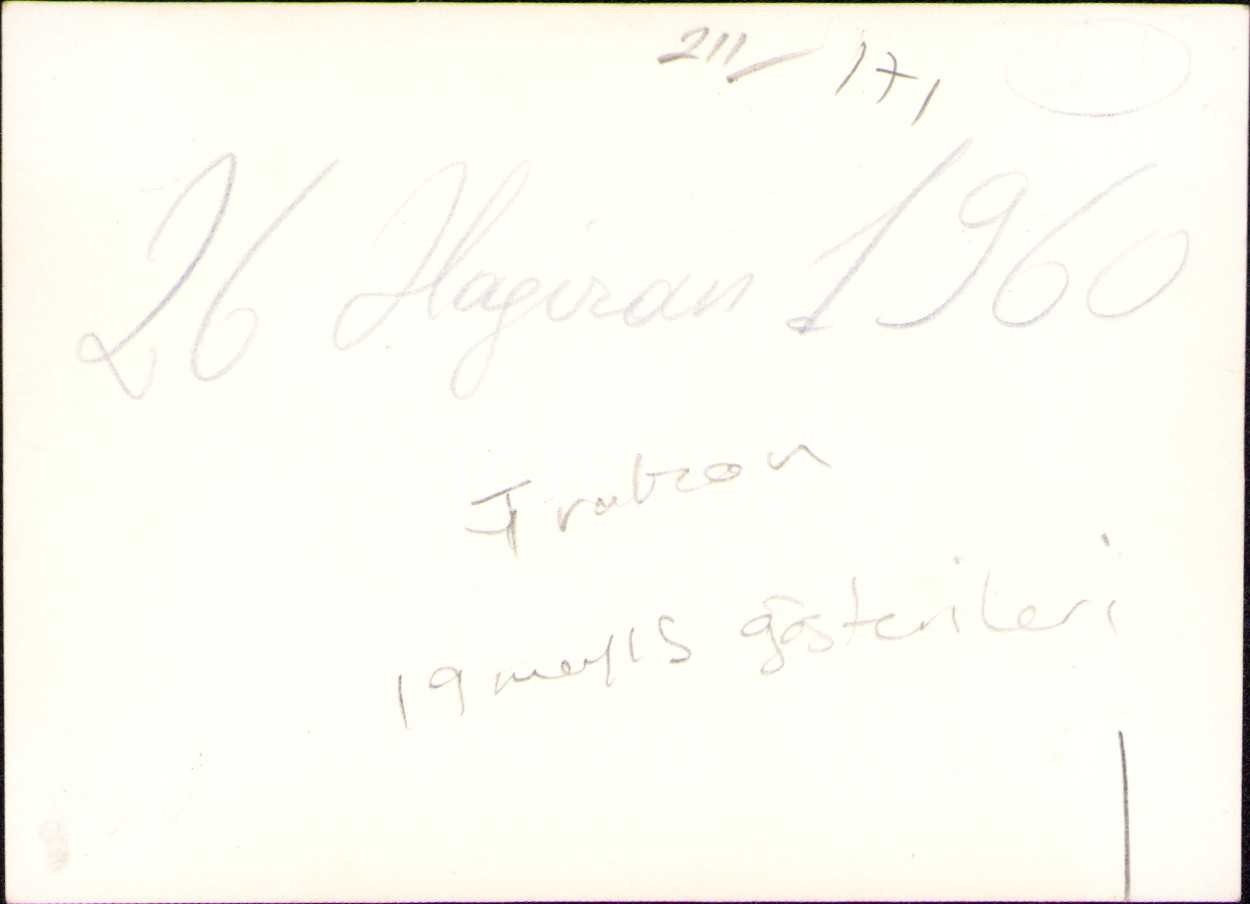 211/171
26 Haziran 1960
Trabzon
19 mayıs gösterileri